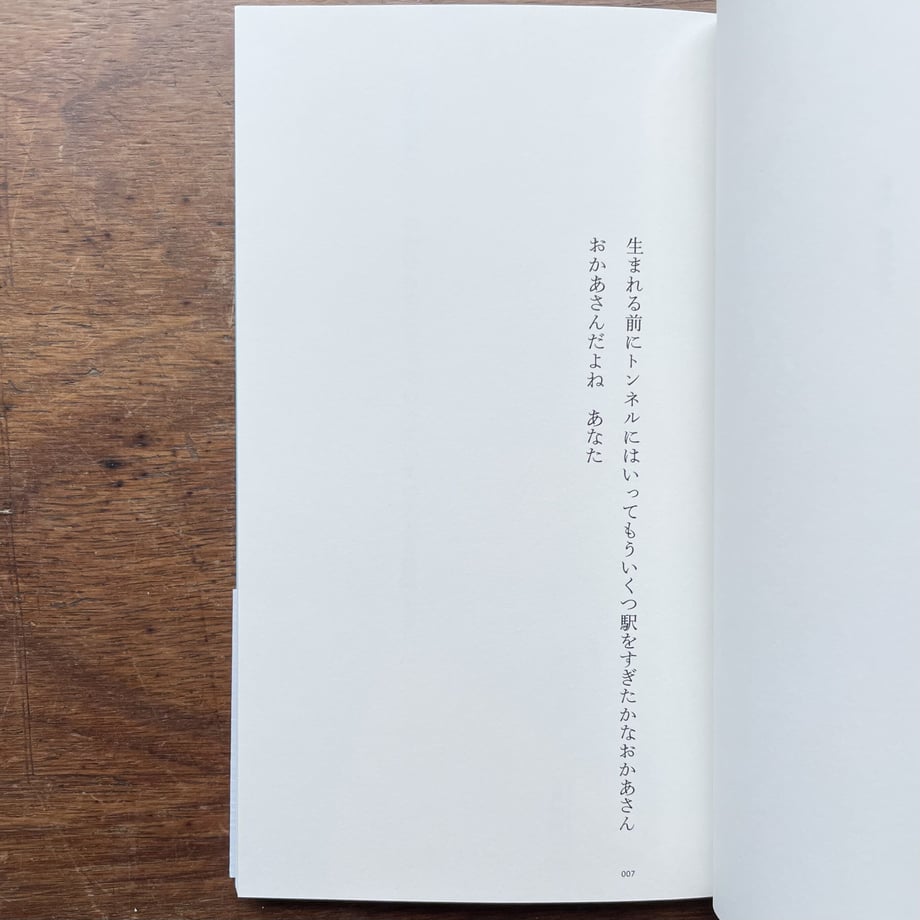 生まれる前にトンネルにはいってもういくつ駅をすぎたかなおかあさん
おかあさんだよね　あなた
007